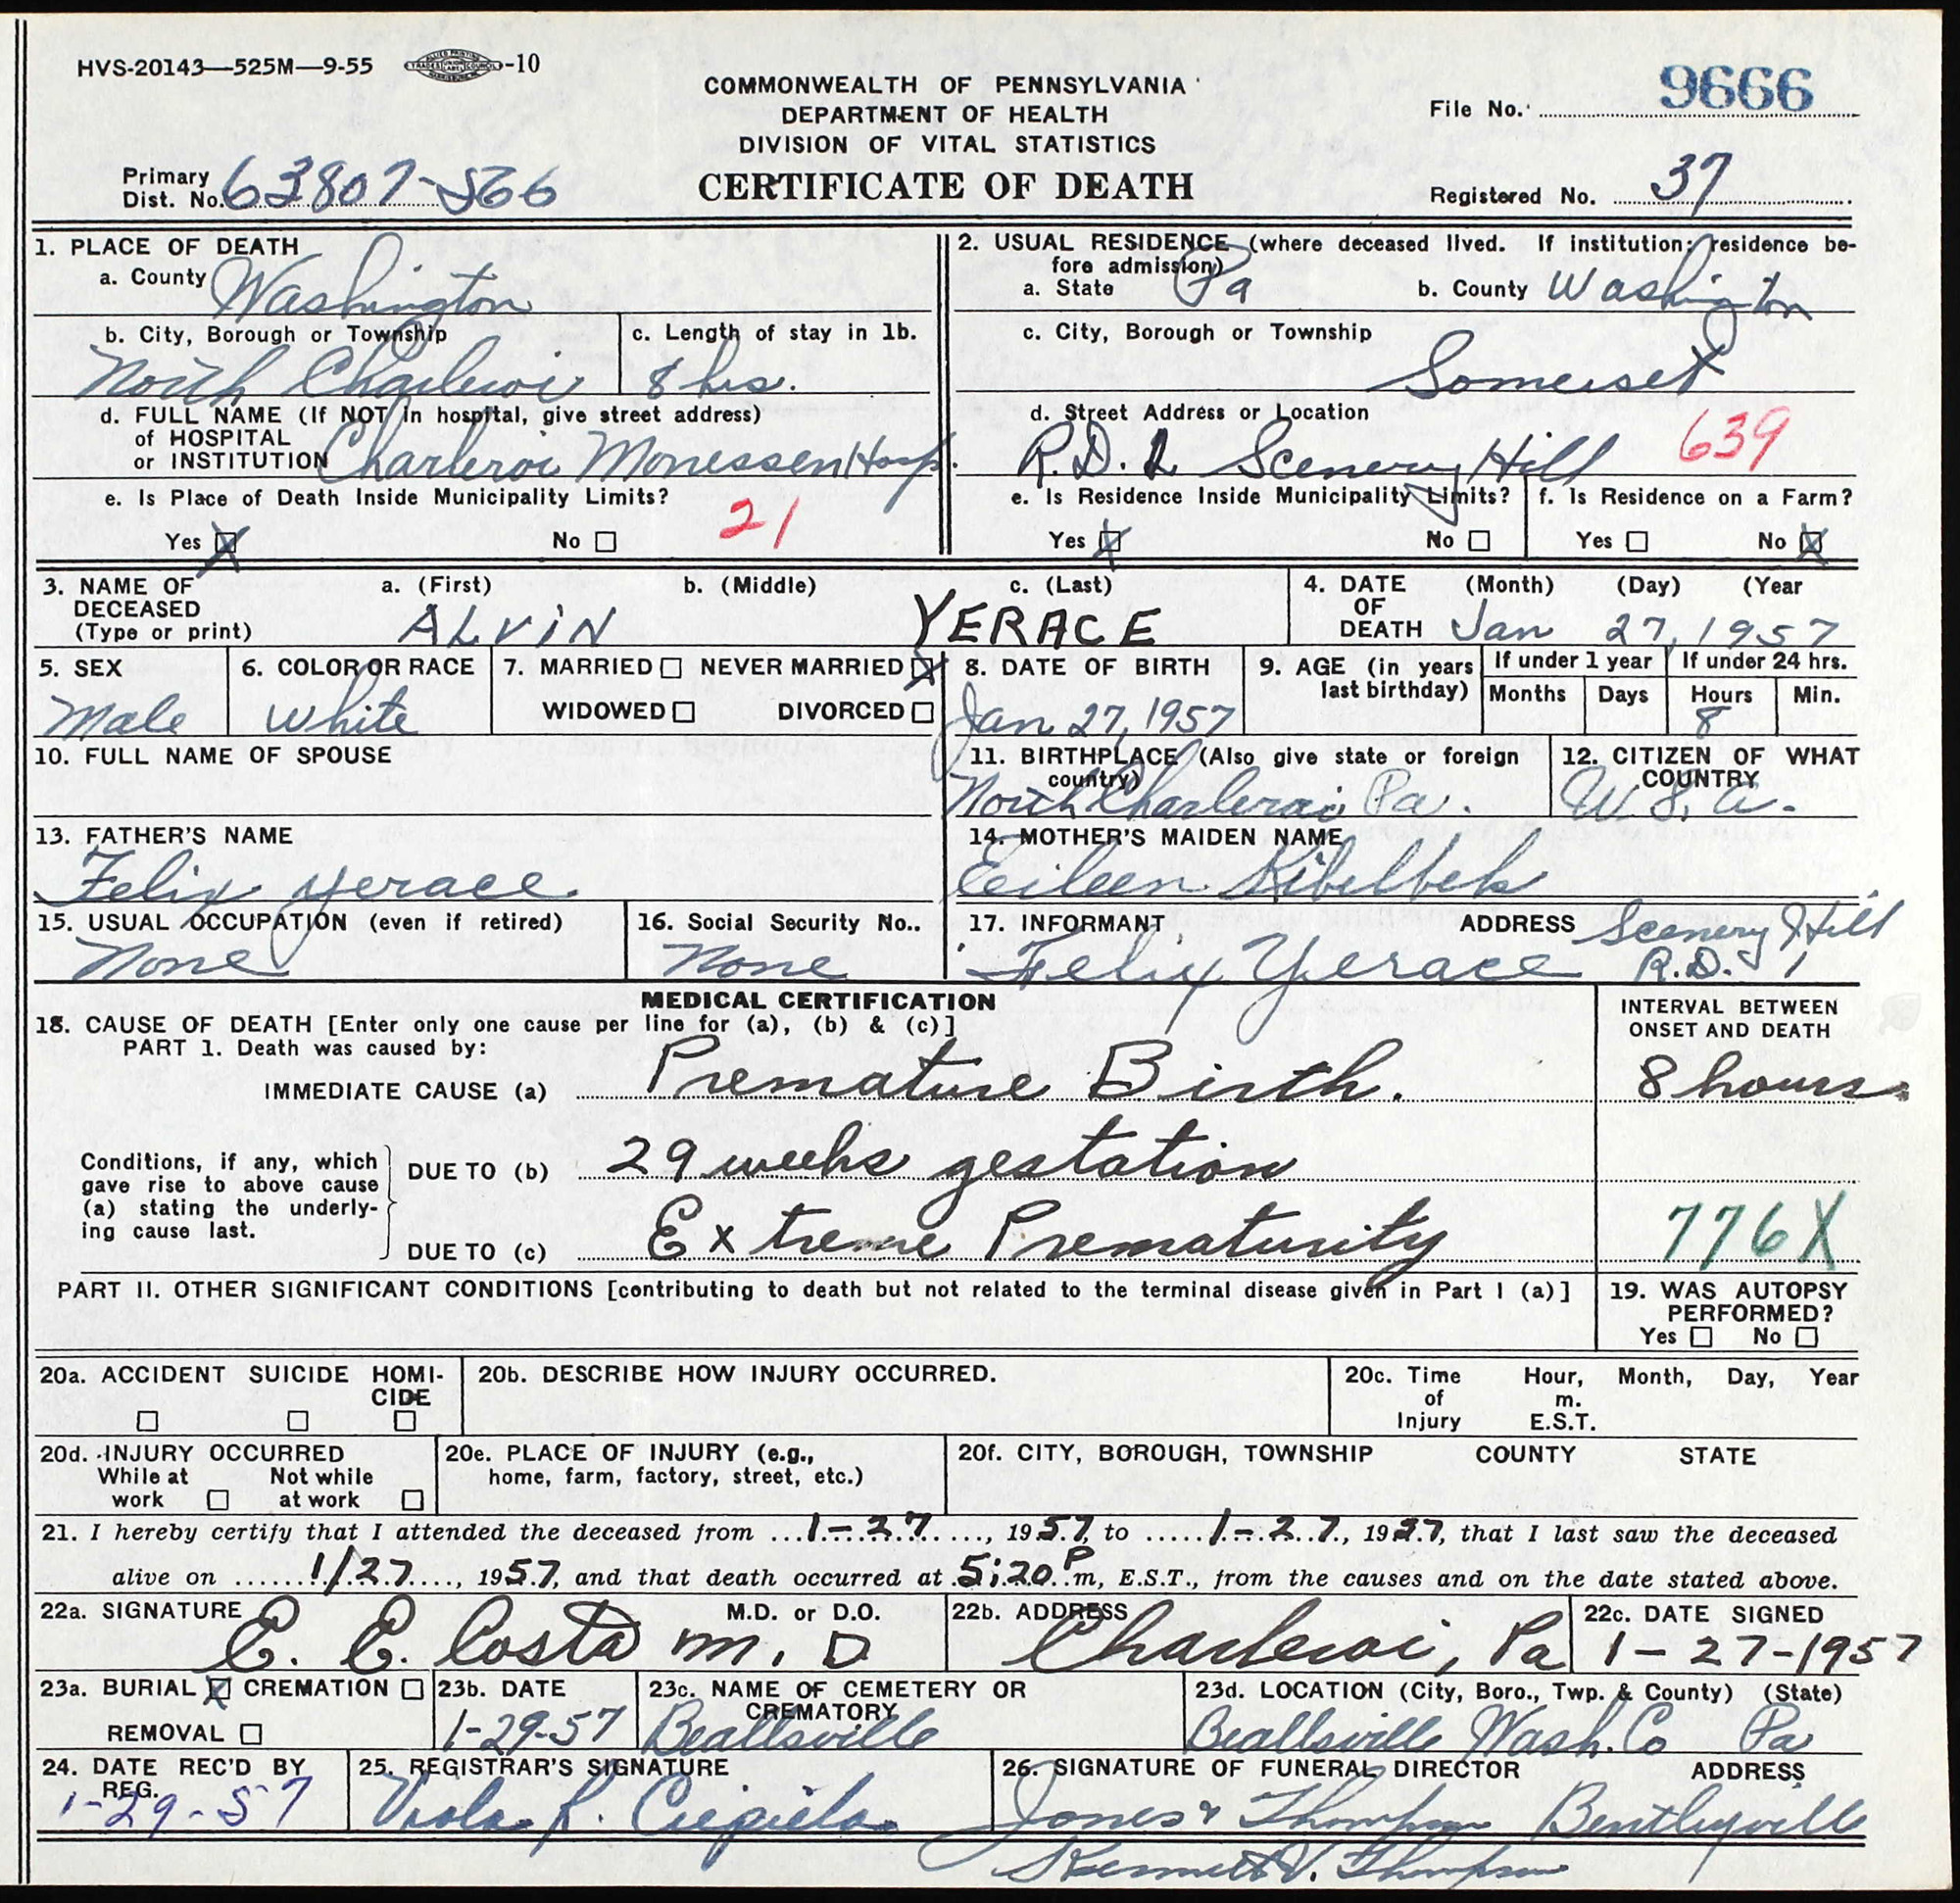 HVS-20143—525M—9-55 -10
COMMONWEALTH OF PENNSYLVANIA
DEPARTMENT OF HEALTH
DIVISION OF VITAL STATISTICS
CERTIFICATE OF DEATH
File No. 9666
Primary
Dist. No. 63807-566
Registered No. 37
1. PLACE OF DEATH
a. County Washington
b. City, Borough or Township
North Charleroi
c. Length of stay in 1b.
8 hrs.
d. FULL NAME (If NOT in hospital, give street address)
of HOSPITAL
or INSTITUTION Charleroi Monessen Hosp.
e. Is Place of Death Inside Municipality Limits?
21
Yes ☒ No ☐
2. USUAL RESIDENCE (where deceased lived. If institution: residence be-
fore admission)
a. State Pa b. County Washington
c. City, Borough or Township
Somerset
d. Street Address or Location
R.D. 1 Scenery Hill 639
e. Is Residence Inside Municipality Limits?
Yes ☒ No ☐
f. Is Residence on a Farm?
Yes ☐ No ☒
3. NAME OF
DECEASED
(Type or print)
a. (First) b. (Middle) c. (Last)
ALVIN YERACE
4. DATE
OF
DEATH
(Month) (Day) (Year
Jan 27, 1957
5. SEX
Male
6. COLOR OR RACE
White
7. MARRIED ☐ NEVER MARRIED ☒
WIDOWED ☐ DIVORCED ☐
8. DATE OF BIRTH
Jan 27, 1957
9. AGE (in years
last birthday)
If under 1 year
Months Days
If under 24 hrs.
Hours Min.
8
10. FULL NAME OF SPOUSE
11. BIRTHPLACE (Also give state or foreign
country)
North Charleroi Pa.
12. CITIZEN OF WHAT
COUNTRY
U.S.A.
13. FATHER'S NAME
Felix Yerace
14. MOTHER'S MAIDEN NAME
Eileen Kibelbek
15. USUAL OCCUPATION (even if retired)
None
16. Social Security No..
None
17. INFORMANT ADDRESS Scenery Hill
Felix Yerace R.D. 1
MEDICAL CERTIFICATION
18. CAUSE OF DEATH [Enter only one cause per line for (a), (b) & (c)]
PART 1. Death was caused by:
INTERVAL BETWEEN
ONSET AND DEATH
IMMEDIATE CAUSE (a) Premature Birth. 8 hours.
Conditions, if any, which
gave rise to above cause
(a) stating the underly-
ing cause last.
DUE TO (b) 29 weeks gestation
DUE TO (c) Extreme Prematurity 776X
PART II. OTHER SIGNIFICANT CONDITIONS [contributing to death but not related to the terminal disease given in Part I (a)]
19. WAS AUTOPSY
PERFORMED?
Yes ☐ No ☐
20a. ACCIDENT SUICIDE HOMI-
CIDE
☐ ☐ ☐
20b. DESCRIBE HOW INJURY OCCURRED.
20c. Time Hour, Month, Day, Year
of m.
Injury E.S.T.
20d. INJURY OCCURRED
While at Not while
work ☐ at work ☐
20e. PLACE OF INJURY (e.g.,
home, farm, factory, street, etc.)
20f. CITY, BOROUGH, TOWNSHIP COUNTY STATE
21. I hereby certify that I attended the deceased from 1-27, 1957, to 1-27, 1957, that I last saw the deceased
alive on 1/27, 1957, and that death occurred at 5:20 Pm, E.S.T., from the causes and on the date stated above.
22a. SIGNATURE M.D. or D.O.
E. E. Costa M.D
22b. ADDRESS
Charleroi, Pa
22c. DATE SIGNED
1-27-1957
23a. BURIAL ☒ CREMATION ☐
REMOVAL ☐
23b. DATE
1-29-57
23c. NAME OF CEMETERY OR
CREMATORY
Beallsville
23d. LOCATION (City, Boro., Twp. & County) (State)
Beallsville Wash. Co Pa
24. DATE REC'D BY
REG.
1-29-57
25. REGISTRAR'S SIGNATURE
Viola R. Ciepiela
26. SIGNATURE OF FUNERAL DIRECTOR ADDRESS
Jones & Thompson Bentleyville
Kenneth V. Thompson